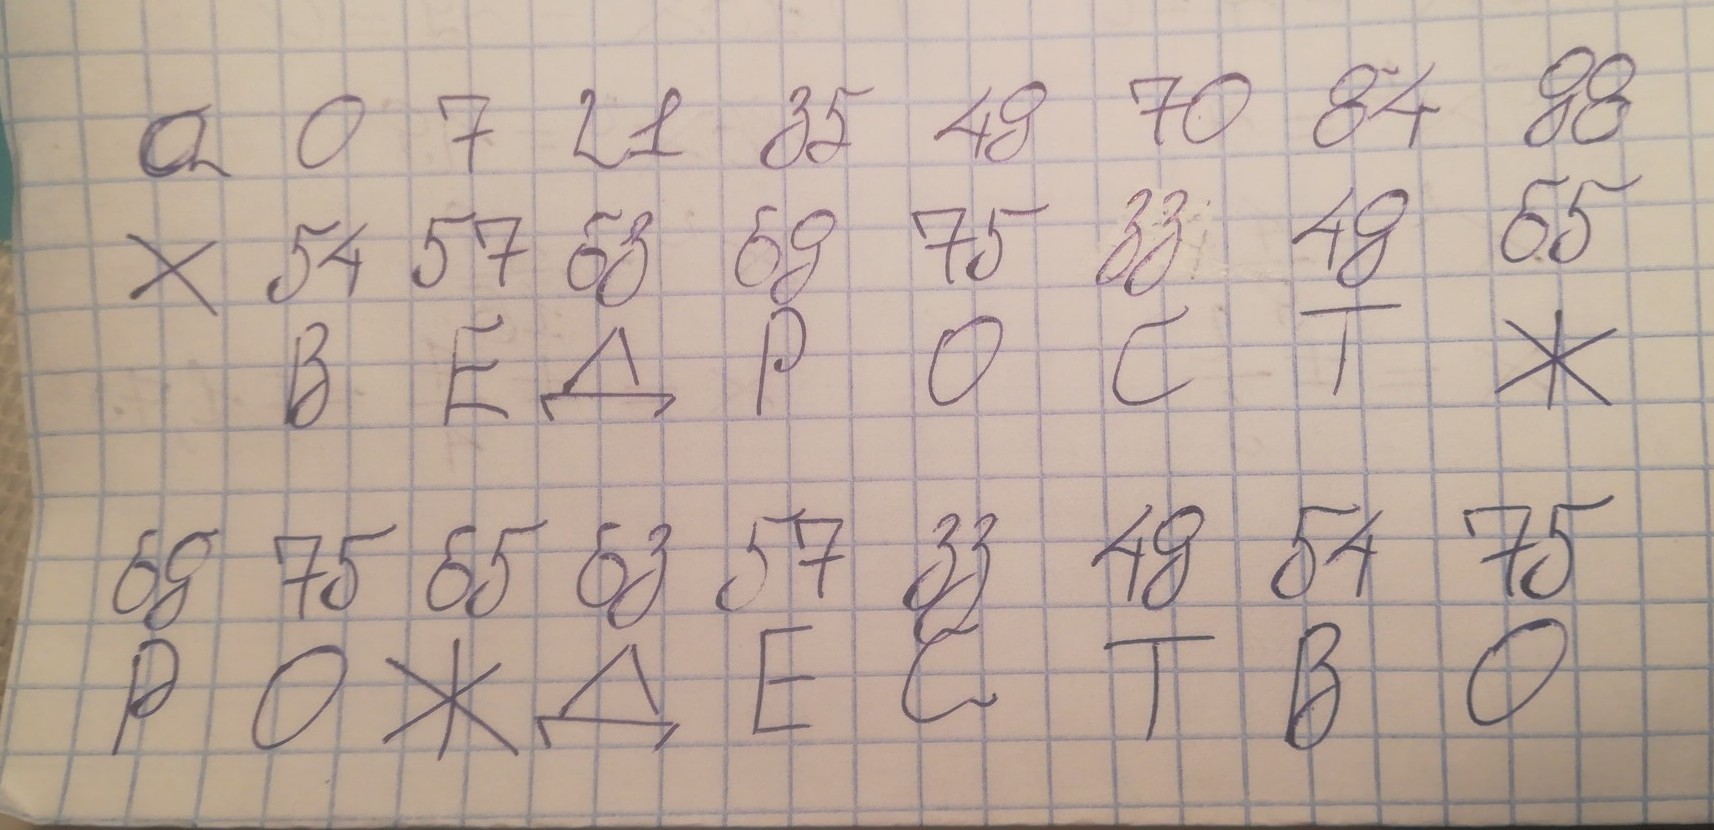 a 0 7 21 35 49 70 84 98
x 54 57 63 69 75 33 49 65
В Е Д Р О С Т Ж
69 75 65 63 57 33 49 54 75
Р О Ж Д Е С Т В О